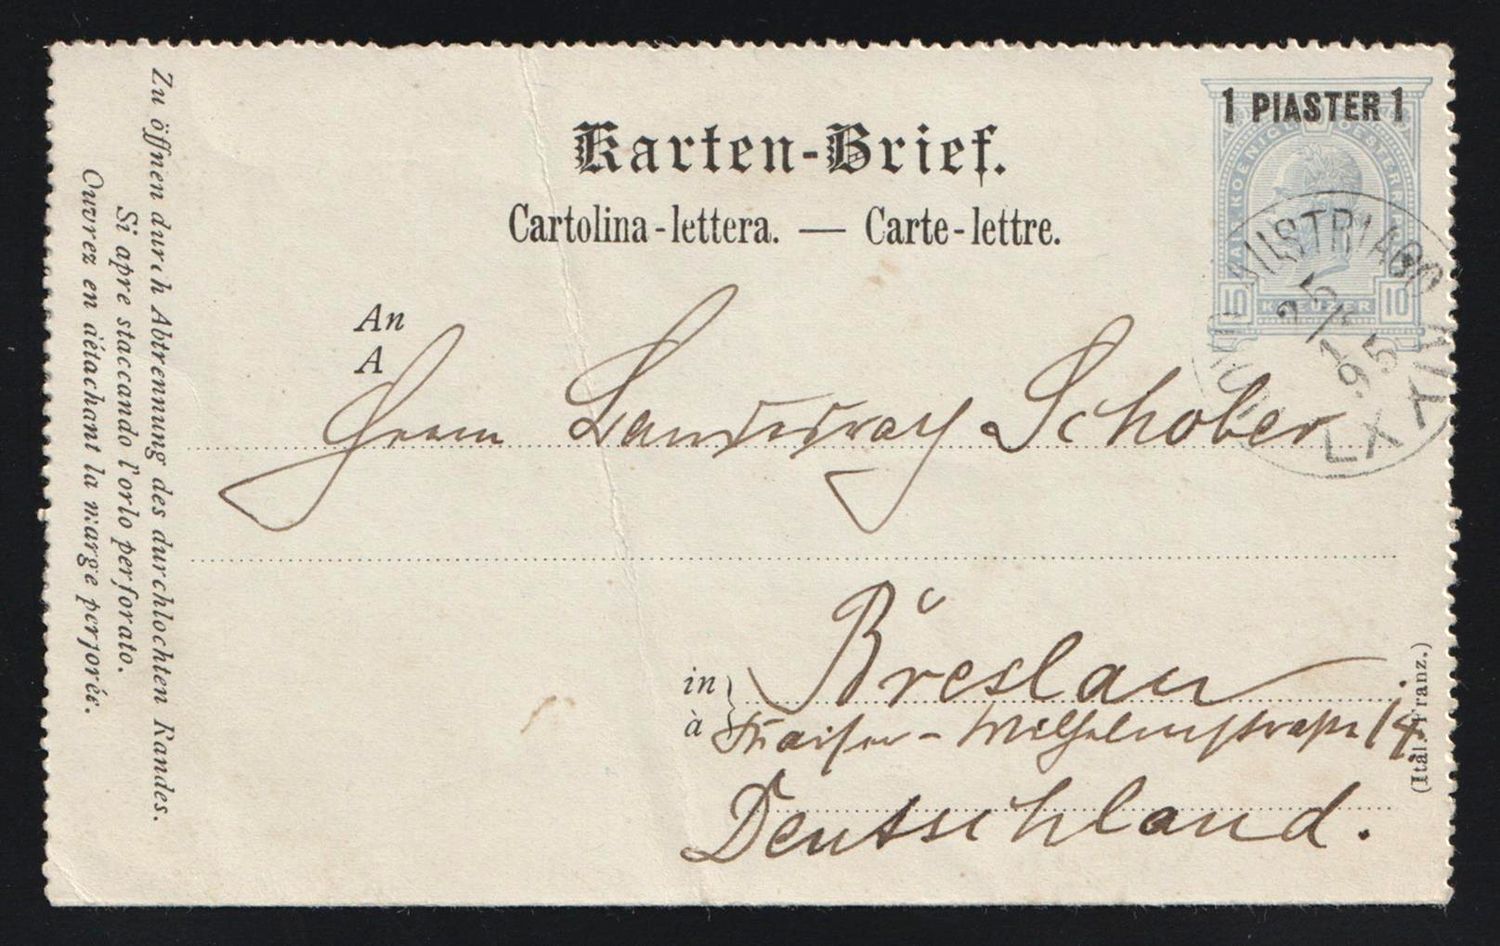 1 PIASTER 1
KAIS. KOENIGL. OESTERR. P
10 KREUZER 10
Karten-Brief.
Cartolina-lettera. — Carte-lettre.
AUSTRIACO
25/1
95
LXXIV
An
A
Herrn Schober
in
à
Breslau
Kaiser-Wilhelmstrasse 14
Deutschland.
(Ital.-Franz.)
Zu öffnen durch Abtrennung des durchlochten Randes.
Si apre staccando l'orlo perforato.
Ouvrez en détachant la marge perforée.